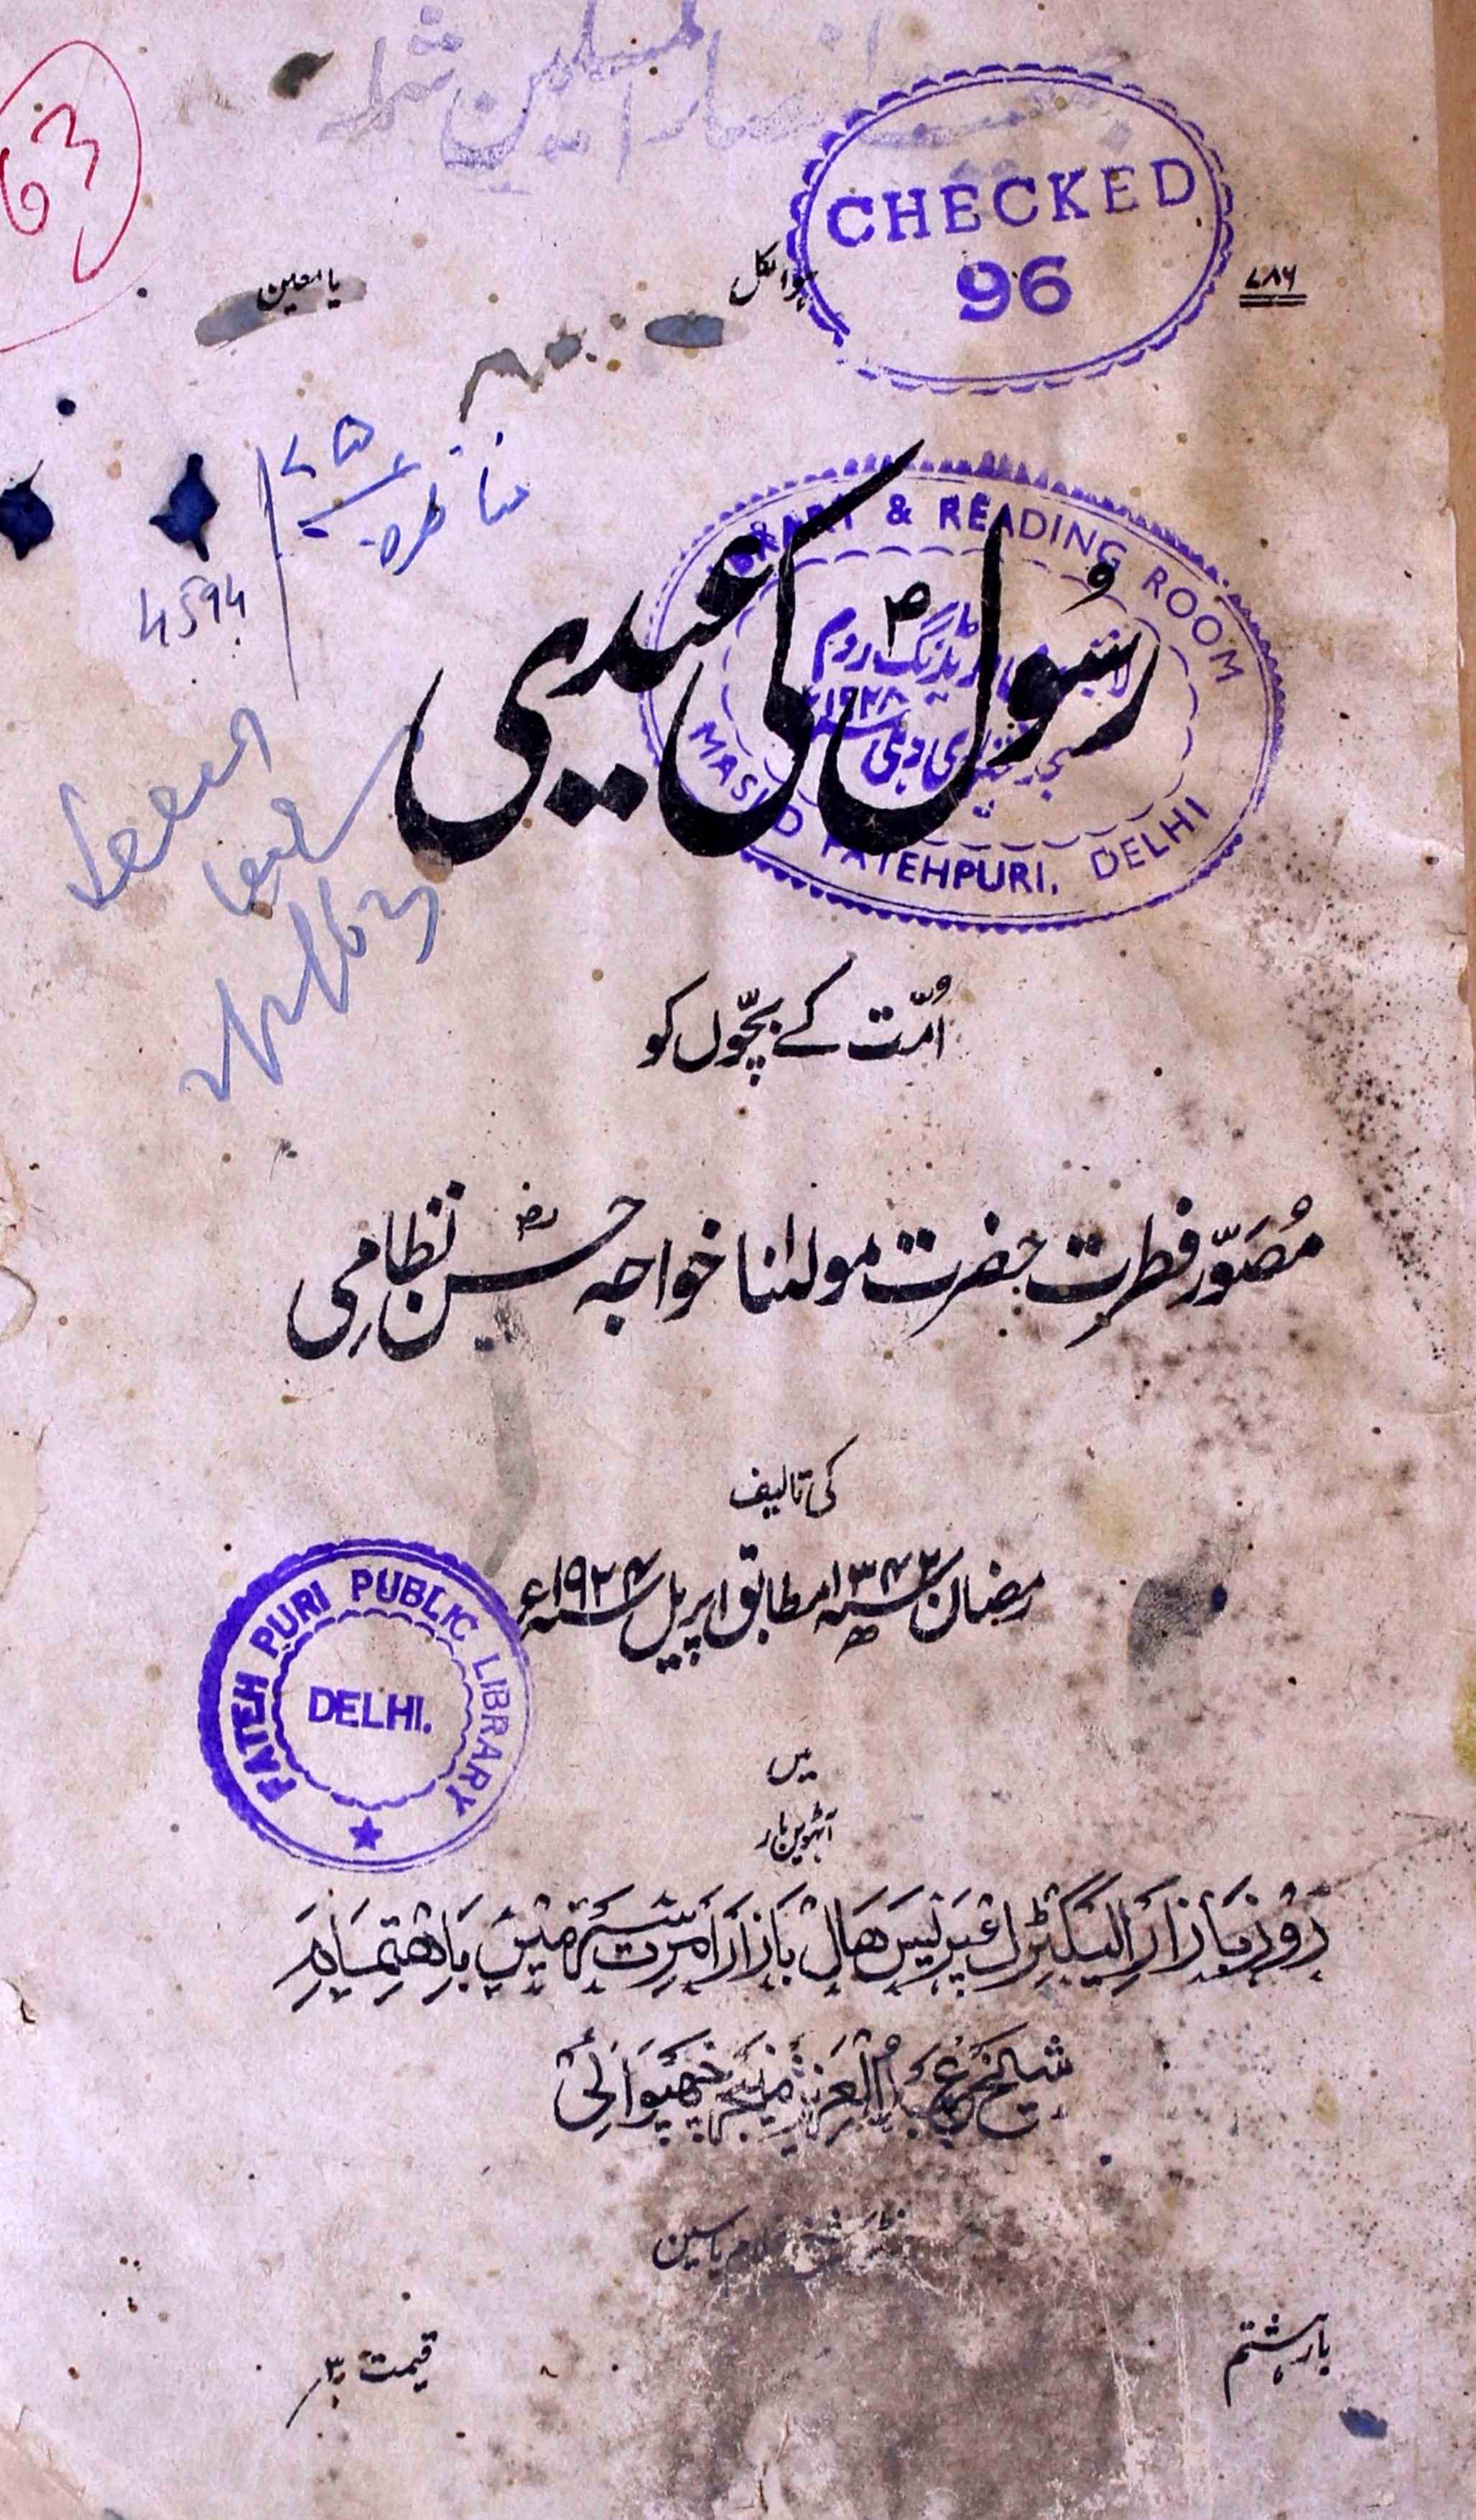 انصار المسلمین شملہ
63
CHECKED
96
۷۸۶
ہوالکل
یا معین
4594
LIBRARY & READING ROOM
ریڈنگ روم
MASJID FATEHPURI. DELHI
رسُولؐ کی عیدی
اُمّت کے بچّوں کو
مُصَوّرِ فطرت حضرت مولٰنا خواجہ حسن نظامی
کی تالیف
رمضان سنہ ۱۳۴۲ھ مطابق اپریل سنہ ۱۹۲۴ء
FATEH PURI PUBLIC LIBRARY
DELHI.
میں
آٹھویں بار
روز بازار الیکٹرک پریس ھال بازار امرت سر میں باھتمام
شیخ عبد العزیز منیجر چھپوائی
غلام یاسین
بار ہشتم
قیمت ۳ر